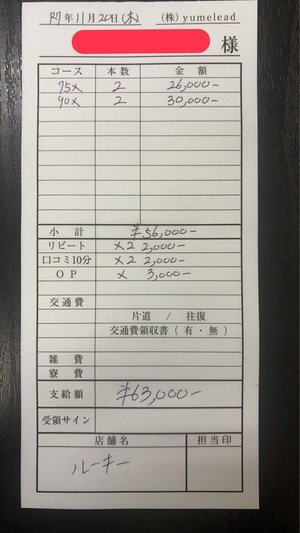 R7年11月20日(木) (株)yumelead
様
コース 本数 金額
75× 2 26,000-
90× 2 30,000-
小計 ¥56,000-
リピート ×2 2,000-
口コミ10分 ×2 2,000-
OP × 3,000-
交通費
片道 / 往復
交通費領収書(有・無)
雑費
寮費
支給額 ¥63,000-
受領サイン
店舗名 担当印
ルーキー